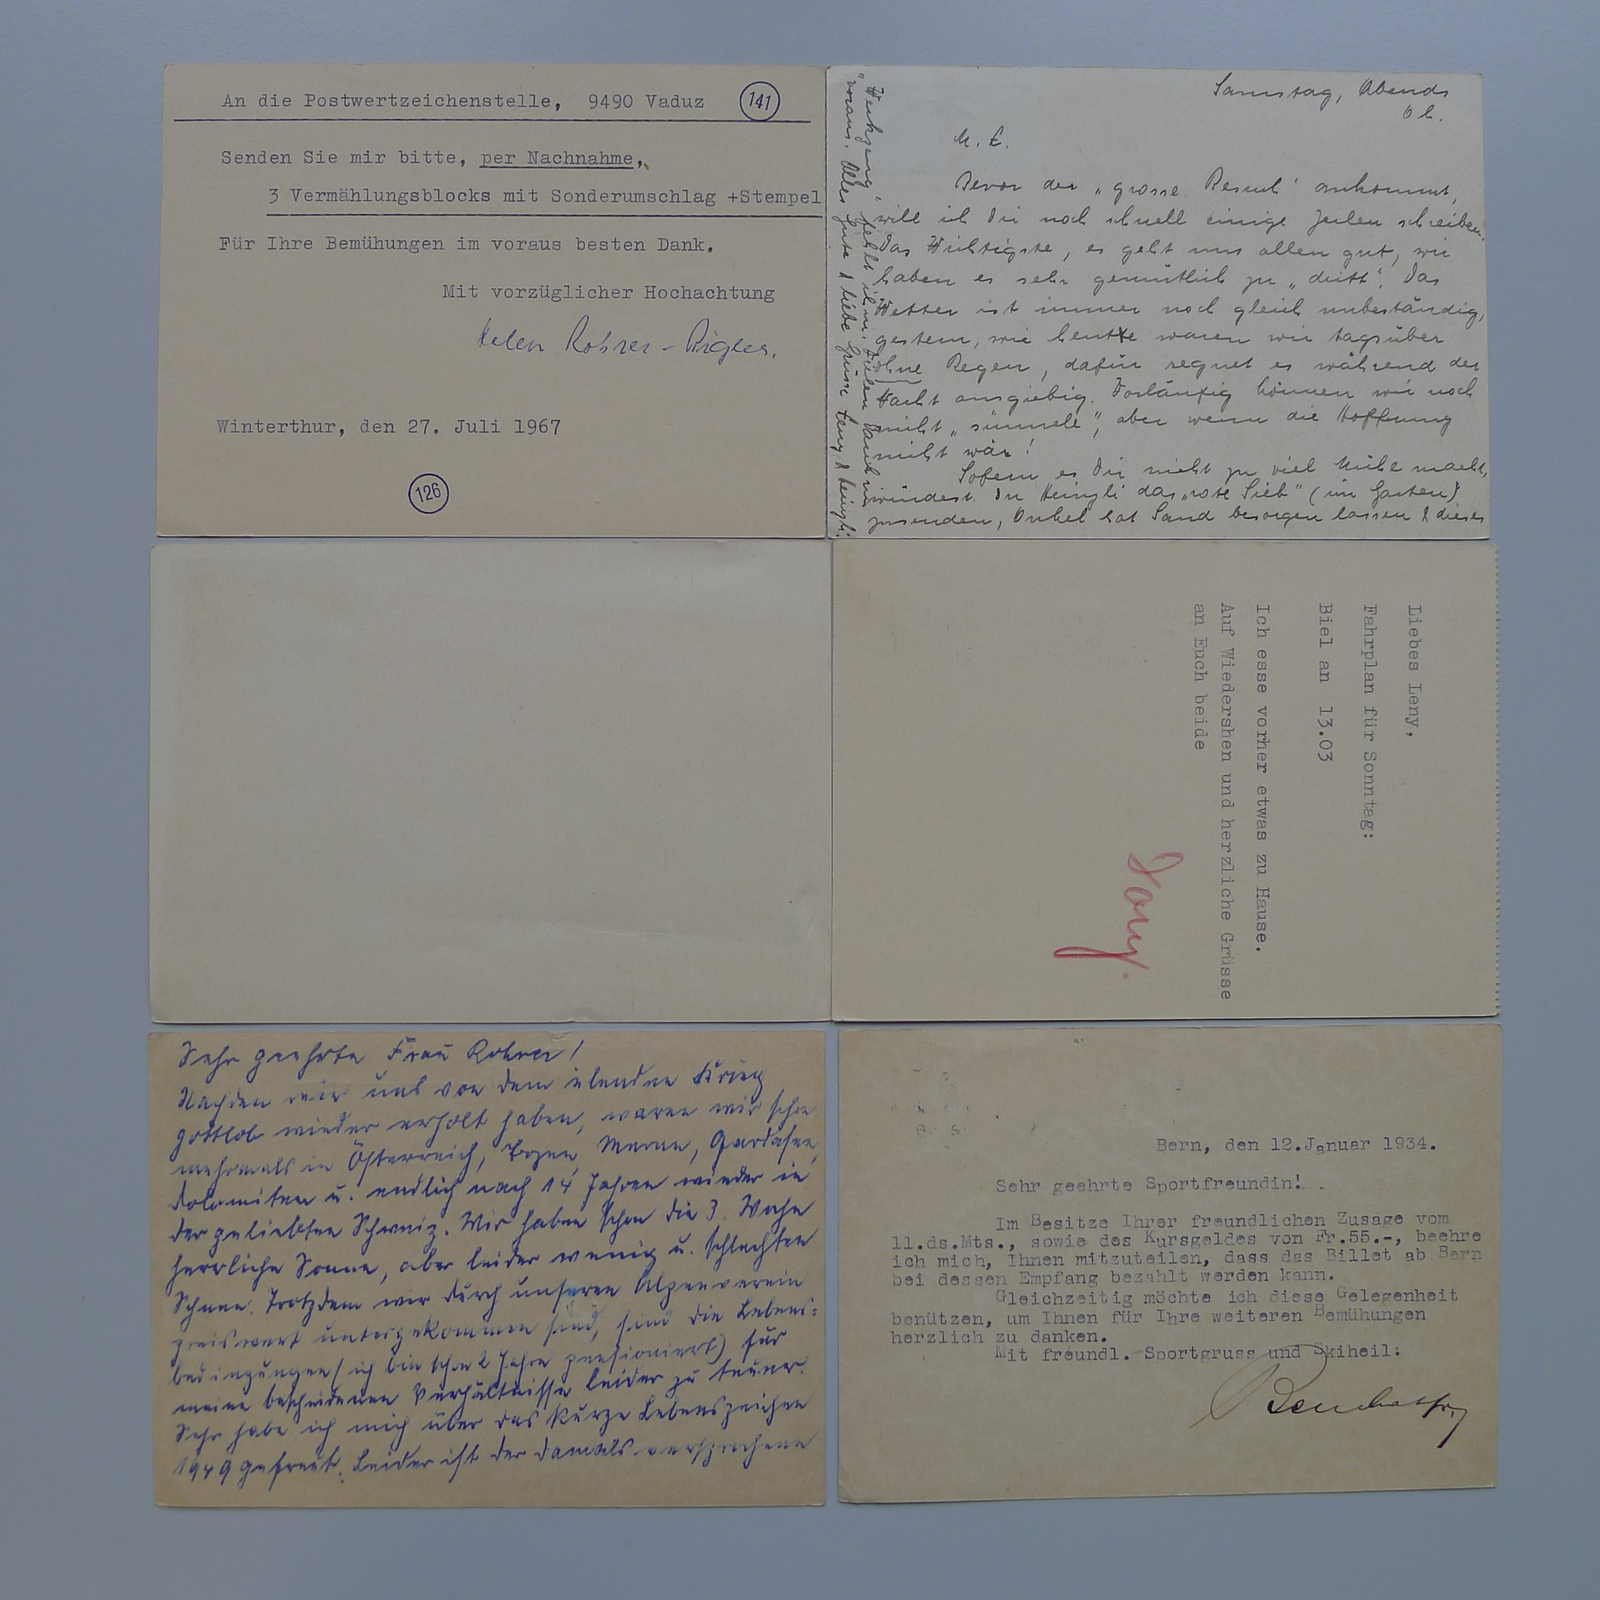 An die Postwertzeichenstelle, 9490 Vaduz 141
Senden Sie mir bitte, per Nachnahme,
3 Vermählungsblocks mit Sonderumschlag +Stempel
Für Ihre Bemühungen im voraus besten Dank.
Mit vorzüglicher Hochachtung
Helen Rohrer-
Winterthur, den 27. Juli 1967
126
Samstag, Abends
M. L.
Bevor der „grosse Besuch" ankommt,
will ich Dir noch schnell einige Zeilen schreiben.
Das Wichtigste, es geht uns allen gut, wir
haben es sehr gemütlich zu „dritt". Das
Wetter ist immer noch gleich unbeständig,
gestern, wie heute waren wir tagsüber
ohne Regen, dafür regnet es während der
Nacht ausgiebig. Vorläufig können wir noch
nicht „sünnele", aber wenn die Hoffnung
nicht wär!
Sofern es Dir nicht zu viel Mühe macht,
würdest Du Heinzli das „rote Sieb" (im Garten)
zusenden, Onkel hat Sand besorgen lassen & dieses
fehlt ihm. Vielen Dank im
voraus. Alles Gute & liebe Grüsse Leny & Heinzli.
Liebes Leny,
Fahrplan für Sonntag:
Biel an 13.03
Ich esse vorher etwas zu Hause.
Auf Wiedersehen und herzliche Grüsse
an Euch beide
Sehr geehrte Frau Rohrer!
Nachdem wir uns von dem elenden Krieg
gottlob wieder erholt haben, waren wir schon
mehrmals in Österreich, Bozen, Meran, Gardasee,
Dolomiten u. endlich nach 14 Jahren wieder in
der geliebten Schweiz. Wir haben schon die 3. Woche
herrliche Sonne, aber leider wenig u. schlechten
Schnee. Trotzdem wir durch unseren Alpenverein
preiswert untergekommen sind, sind die Lebens=
bedingungen (ich bin schon 2 Jahre pensioniert) für
meine bescheidenen Verhältnisse leider zu teuer.
Sehr habe ich mich über das kurze Lebenszeichen
1949 gefreut. Leider ist der damals versprochene
Bern, den 12.Januar 1934.
Sehr geehrte Sportfreundin!
Im Besitze Ihrer freundlichen Zusage vom
11.ds.Mts., sowie des Kursgeldes von Fr.55.-, beehre
ich mich, Ihnen mitzuteilen, dass das Billet ab Bern
bei dessen Empfang bezahlt werden kann.
Gleichzeitig möchte ich diese Gelegenheit
benützen, um Ihnen für Ihre weiteren Bemühungen
herzlich zu danken.
Mit freundl. Sportgruss und Skiheil: